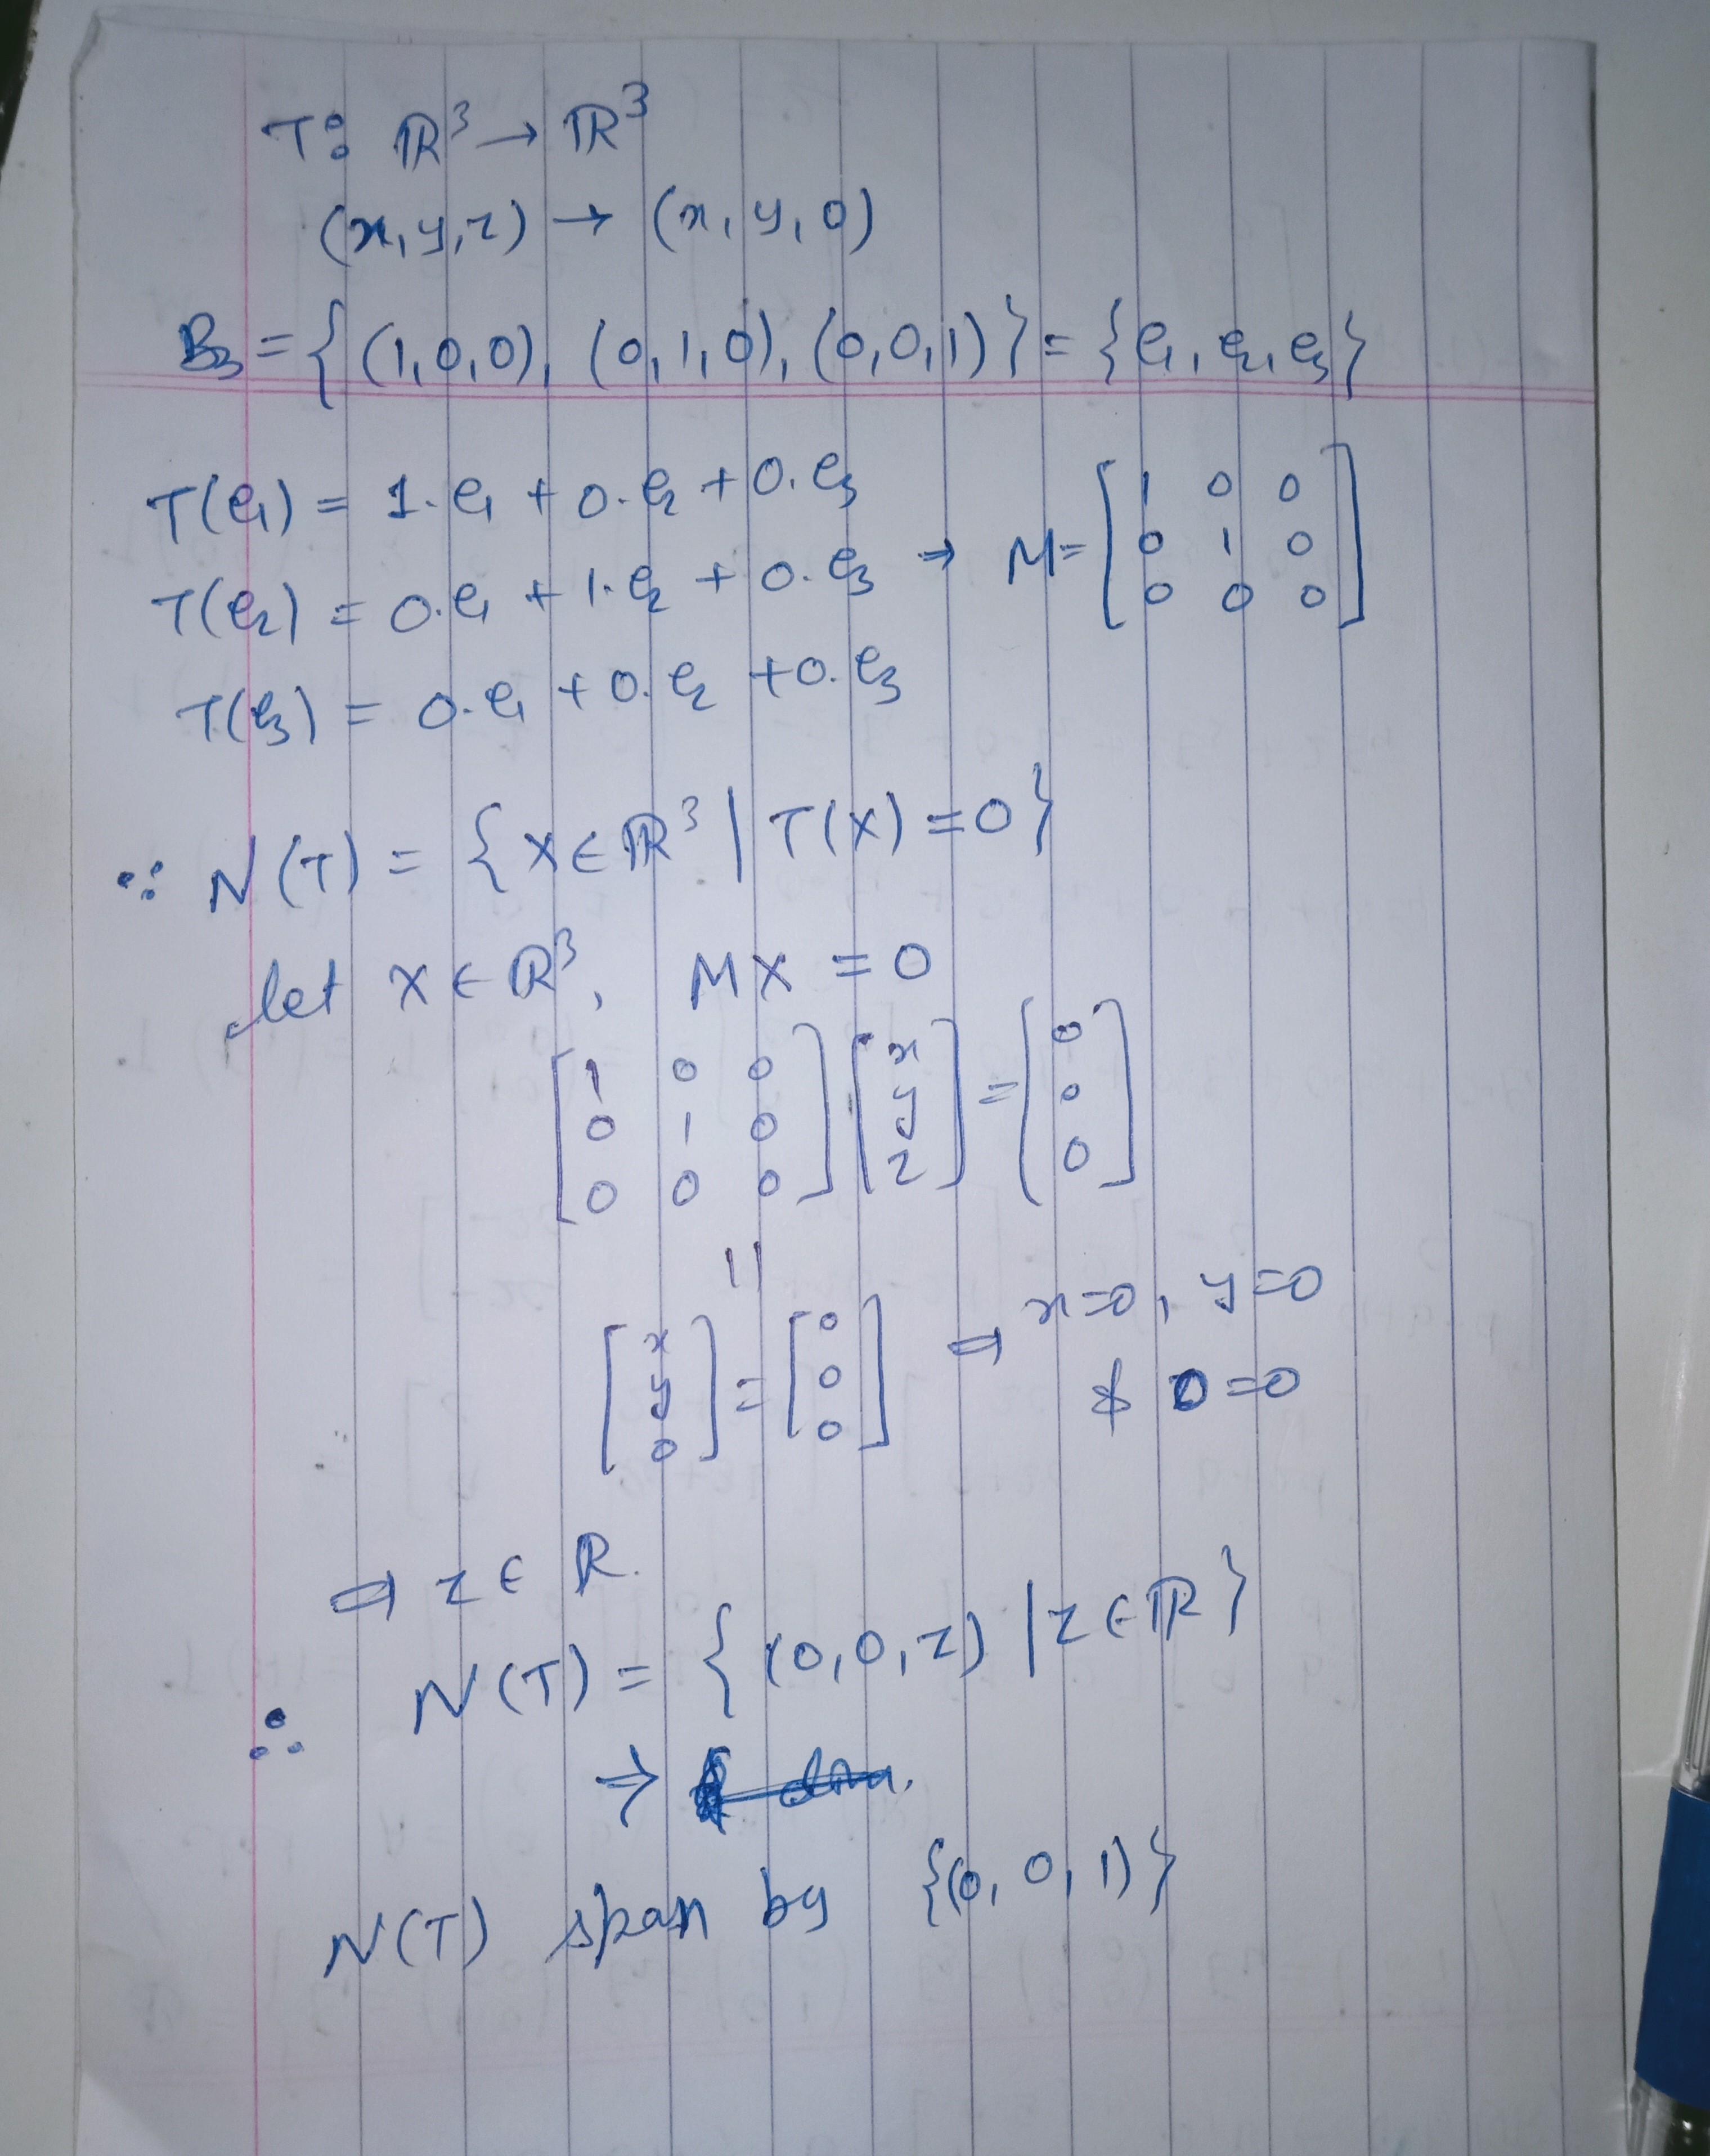 T: ℝ³ → ℝ³
(x, y, z) → (x, y, 0)
B₃ = {(1,0,0), (0,1,0), (0,0,1)} = {e₁, e₂, e₃}
T(e₁) = 1·e₁ + 0·e₂ + 0·e₃
T(e₂) = 0·e₁ + 1·e₂ + 0·e₃ → M = [1 0 0; 0 1 0; 0 0 0]
T(e₃) = 0·e₁ + 0·e₂ + 0·e₃
∵ N(T) = {X ∈ ℝ³ | T(X) = 0}
let X ∈ ℝ³, MX = 0
[1 0 0; 0 1 0; 0 0 0] [x; y; z] = [0; 0; 0]
||
[x; y; 0] = [0; 0; 0] ⇒ x=0, y=0
& 0=0
⇒ z ∈ ℝ.
∴ N(T) = {(0,0,z) | z ∈ ℝ}
→
N(T) span by {(0, 0, 1)}